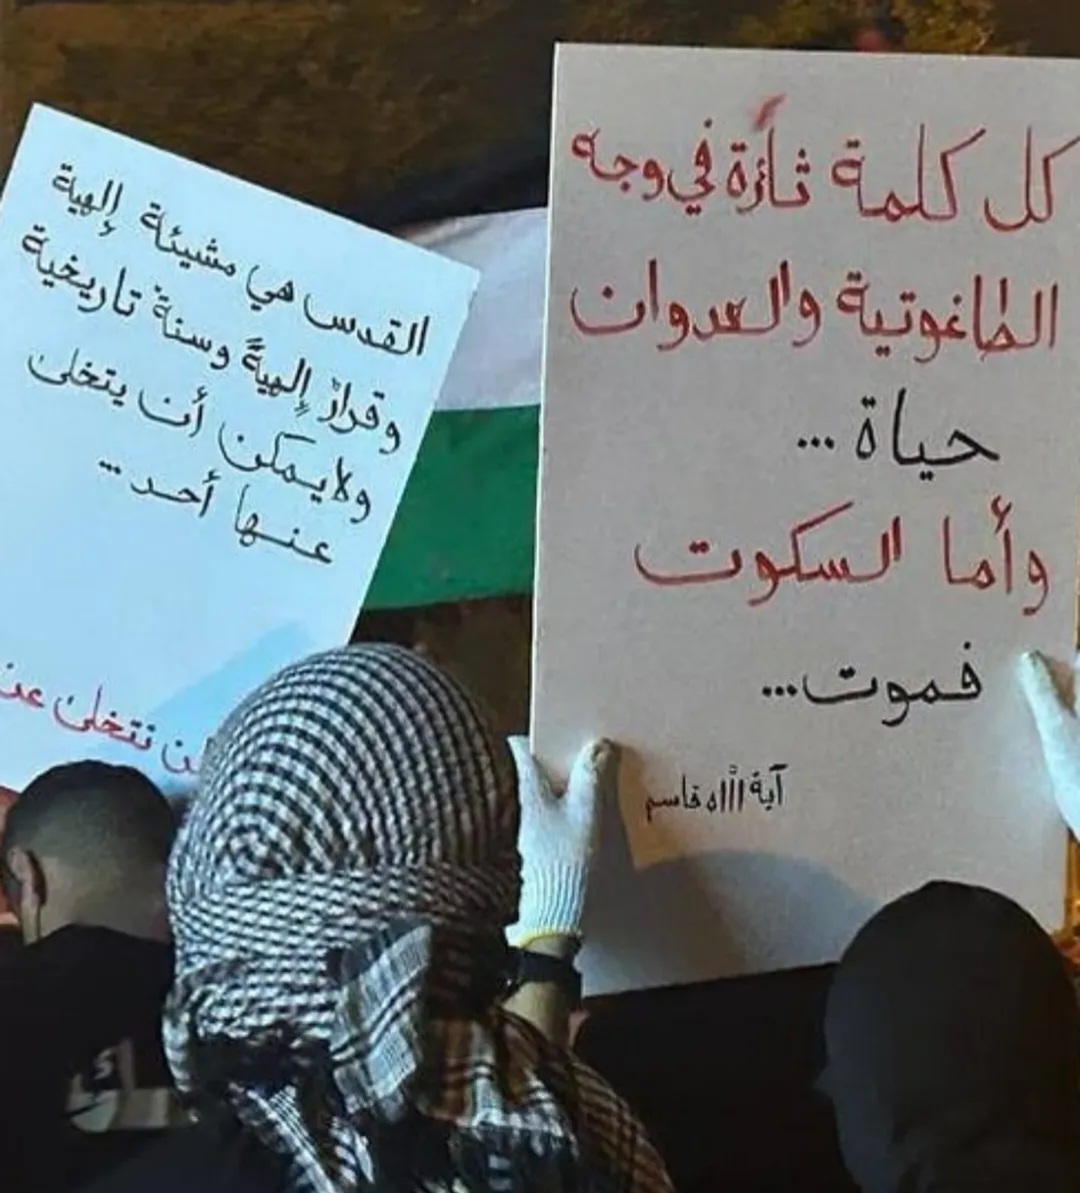 كل كلمة ثائرة في وجه
الطاغوتية والعدوان
حياة ...
وأما السكوت
فموت...
آية الله قاسم
القدس هي مشيئة إلهية
وقرارٌ إلهيةً وسنة تاريخية
ولا يمكن أن يتخلى
عنها أحد ...
لن نتخلى